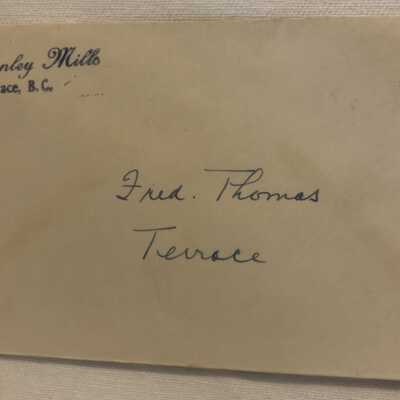 nley Mills
ace, B.C.
Fred. Thomas
Terrace